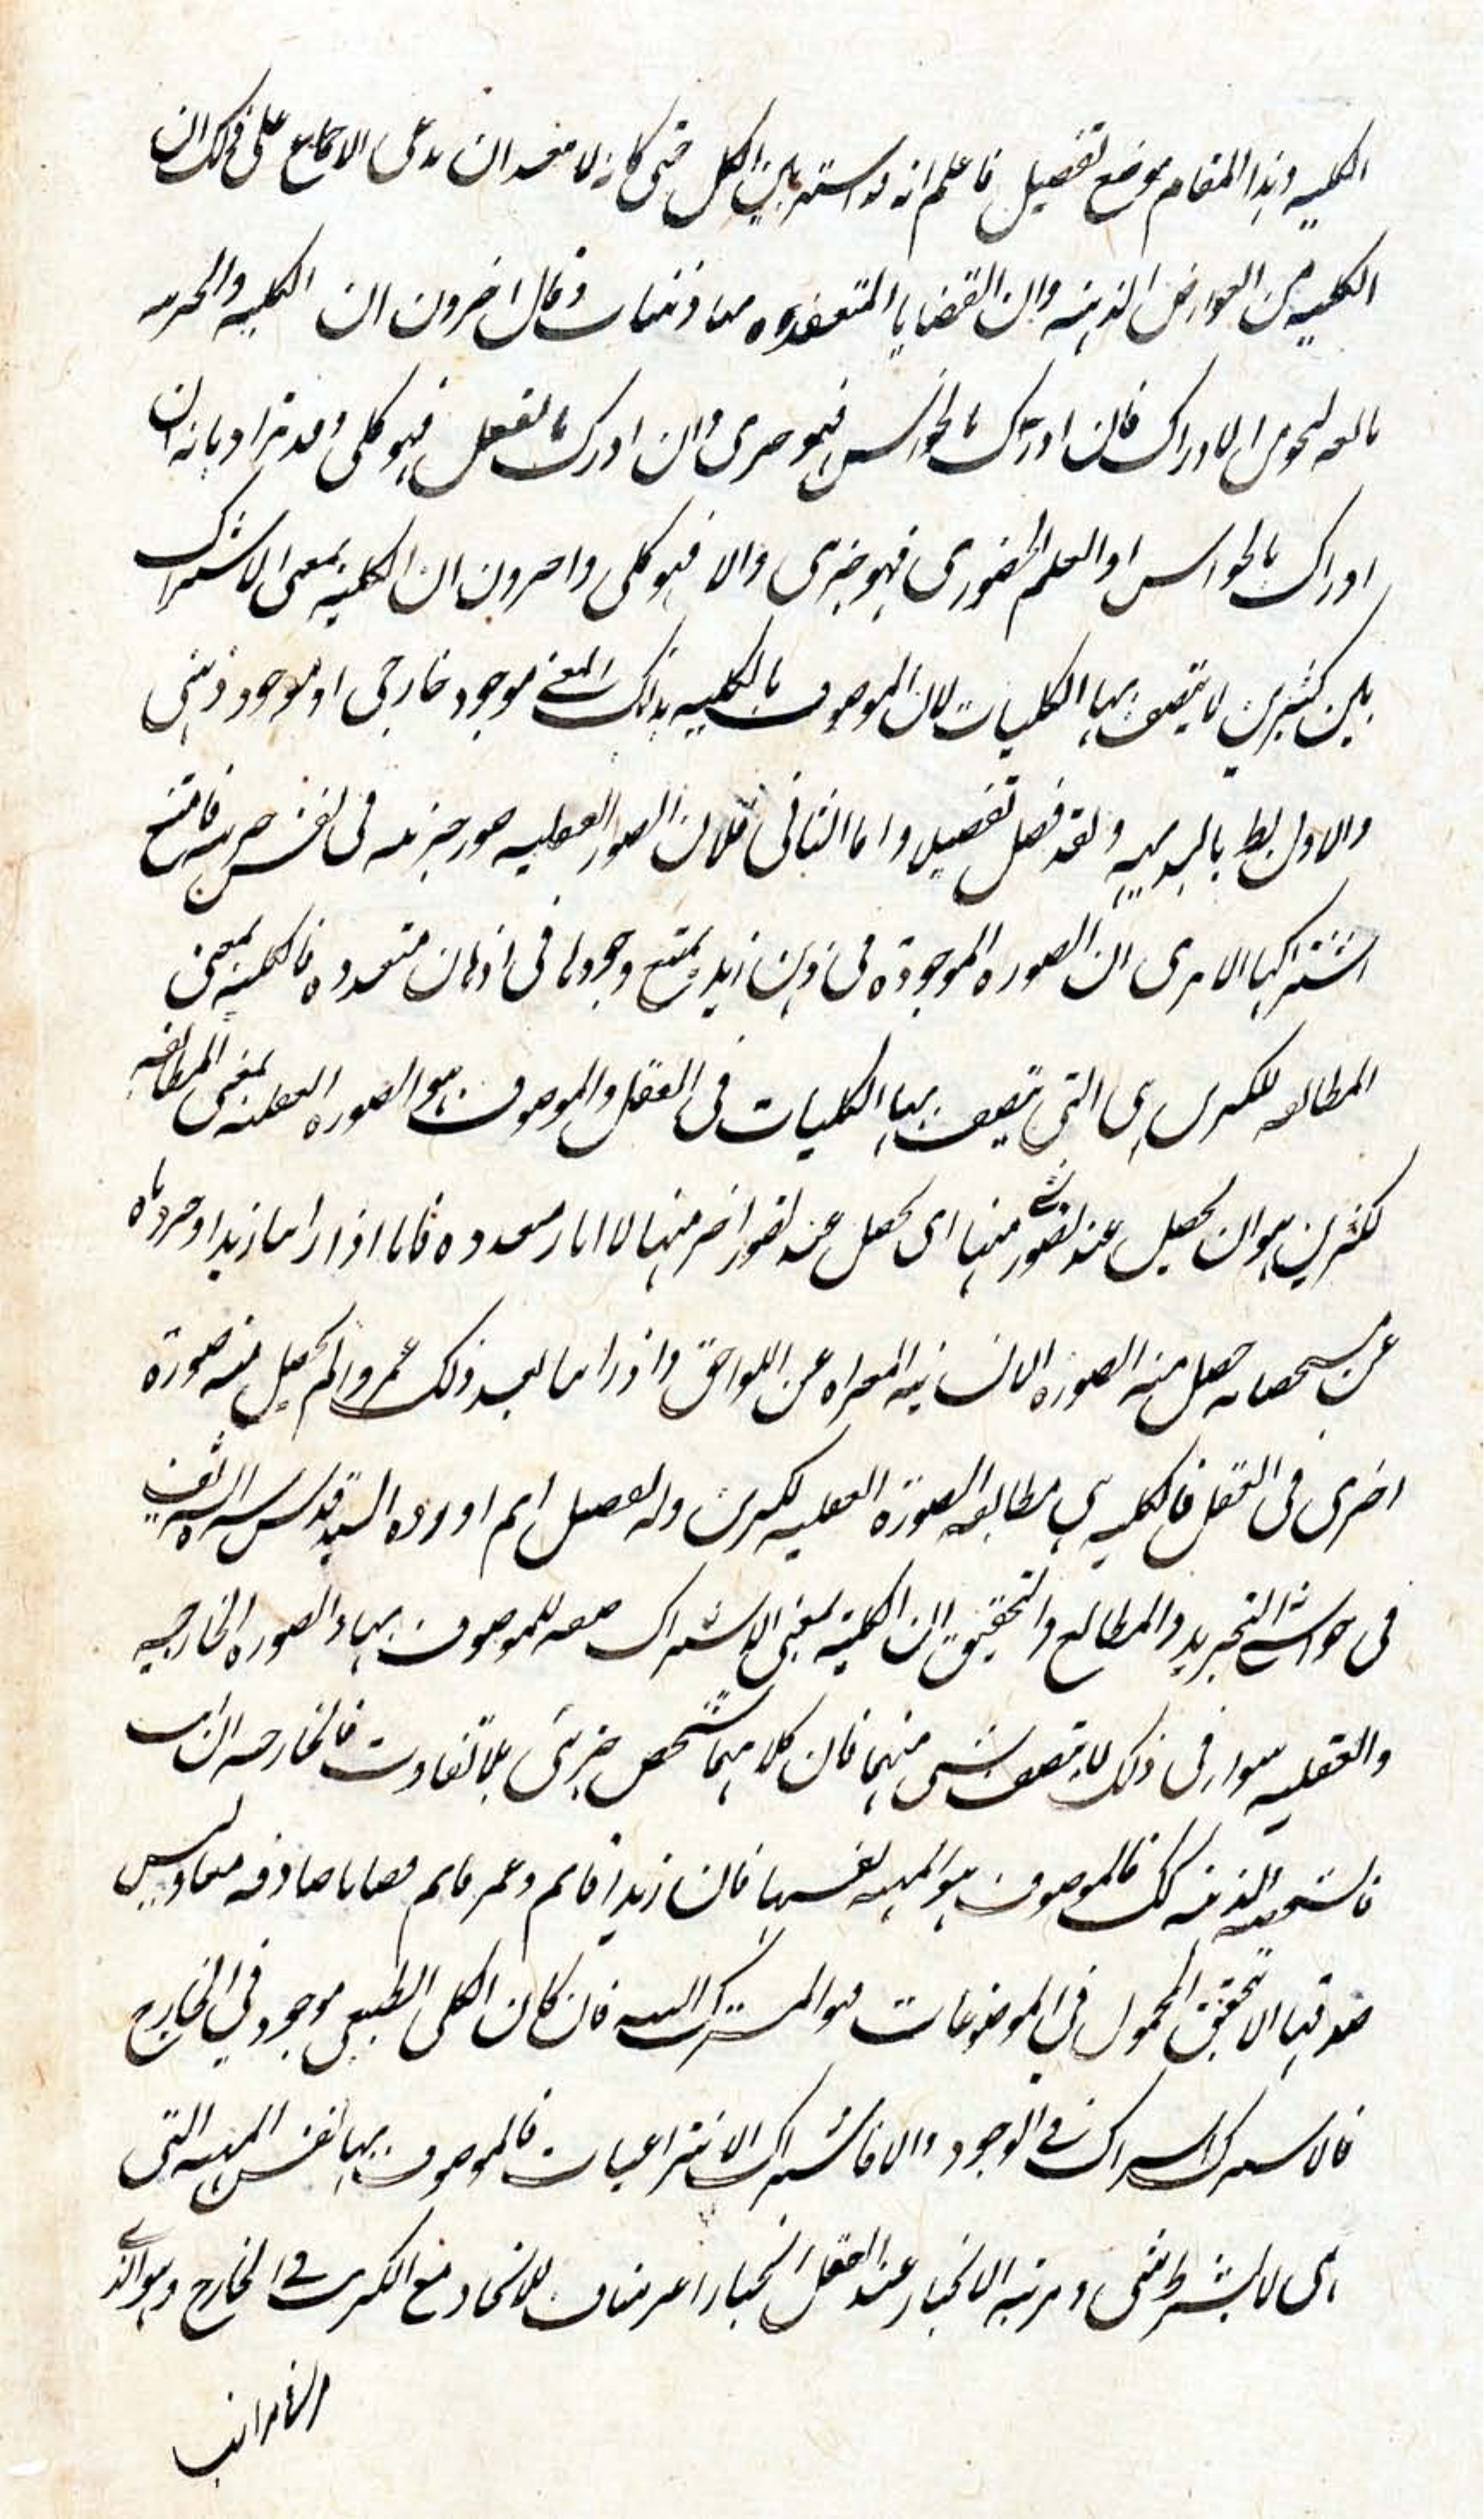 الكليه وهذا المقام موضع تفصيل فاعلم انه قد اشتهر بين الكل حتى كاد لا يبعد ان يدعى الاجماع على ذلك ان
الكليه من العوارض الذهنيه وان القضايا المنعقده منها ذهنيات وقال اخرون ان الكليه والجزئيه
تابعه لنحوى الادراك فان ادرك بالحواس فهو جزئى وان ادرك بالعقل فهو كلى وقد يزاد بانه ان
ادرك بالحواس او العلم الحضورى فهو جزئى والا فهو كلى واخرون ان الكليه بمعنى الاشتراك
بين كثيرين لا يتصف بها الكليات لان الموصوف بالكليه بذلك المعنى موجود خارجى او موجود ذهنى
والاول بط بالبديهيه ولقد فصل تفصيلا واما الثانى فلان الصور العقليه صور جزئيه فى نفس جزئيه فامتنع
اشتراكها الا ترى ان الصوره الموجودة فى ذهن زيد يمتنع وجودها فى اذهان متعدده فالكليه بمعنى
المطابقه للكثيرين هى التى يتصف بها الكليات فى العقل والموصوف هو الصوره العقليه بمعنى المطابقه
لكثيرين هو ان يحصل عند تصور شئ منها اى يحصل عند تصور اخر منها لا اثار متعدده فانا اذا راينا زيدا وجردناه
عن مشخصاته حصل منه الصوره الانسانيه المعراه عن اللواحق واذا راينا بعد ذلك عمروا لم يحصل منه صورة
اخرى فى العقل فالكليه هى مطابقه الصورة العقليه لكثيرين وله تفصيل اتم اورده السيد قدس سره الشريف
فى حواشى التجريد والمطالع والتحقيق ان الكليه بمعنى الاشتراك صفه للموصوف بها والصوره الخارجيه
والعقليه سواء فى ذلك لا يتصف شى منهما فان كلا منهما شخص جزئى بلا تفاوت فالخارجيه ان ابت
فالشخصيه الذهنيه كك فالموصوف هو المهيه نفسها فان زيدا قائم وعمر قائم قضايا صادقه معا وليس
صدقها الا بتحقق المحمول فى الموضوعات فهو المشترك البته فان كان الكلى الطبيعى موجود فى الخارج
فالاشتراك اشتراك فى الوجود والا فاشتراك الانتزاعيات فالموصوف بها نفس المهيه التى
هى لا بشرط شى ومرتبه الانحياز عند العقل انحيازا غير مناف للاتحاد مع الكثرين فى الخارج وهو الذى